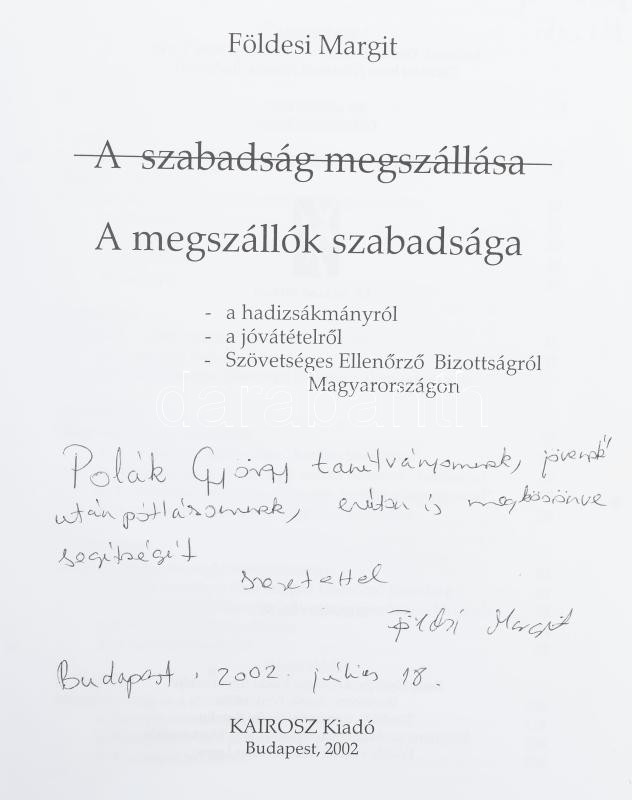 Földesi Margit
A szabadság megszállása
A megszállók szabadsága
- a hadizsákmányról
- a jóvátételről
- Szövetséges Ellenőrző Bizottságról
Magyarországon
darabanth
Polák György tanítványomnak, jövendő
utánpótlásomnak, ezúton is megköszönve
segítségét
szeretettel
Földesi Margit
Budapest, 2002. július 18.
KAIROSZ Kiadó
Budapest, 2002